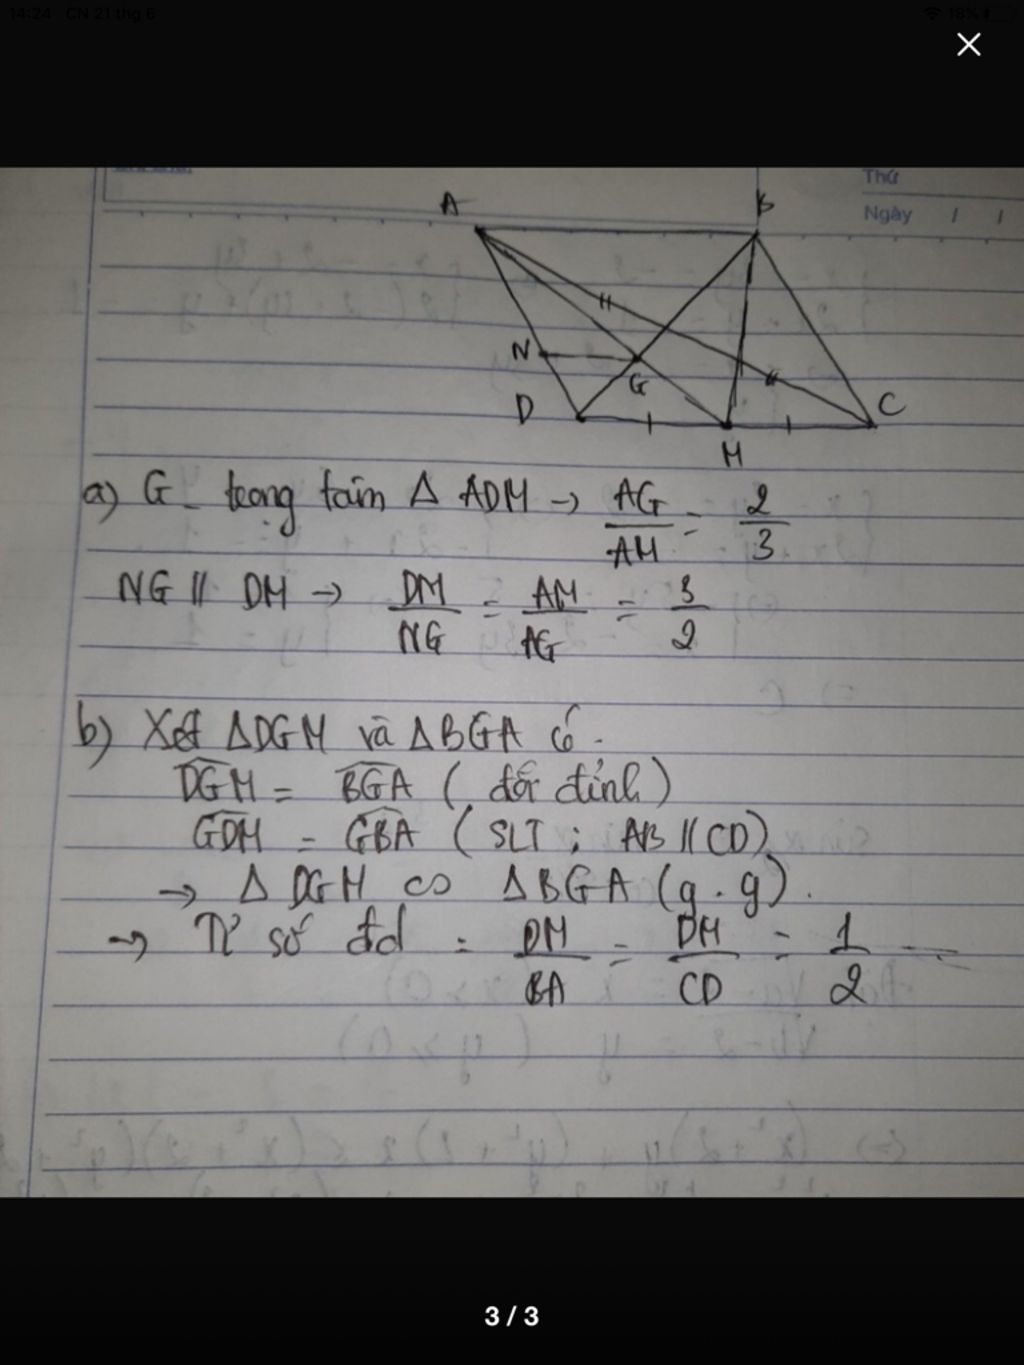 14:24 CN 21 thg 6
18%
Thứ
Ngày / /
A
B
N
G
D
M
C
a) G trọng tâm Δ ADM → AG/AM = 2/3
NG // DM → DM/NG = AM/AG = 3/2
b) Xét ΔDGM và ΔBGA có
DGM = BGA ( đối đỉnh )
GDM = GBA ( SLT ; AB // CD )
→ Δ DGM ∽ ΔBGA (g.g).
→ Tỉ số đd = DM/BA = DM/CD = 1/2
3 / 3